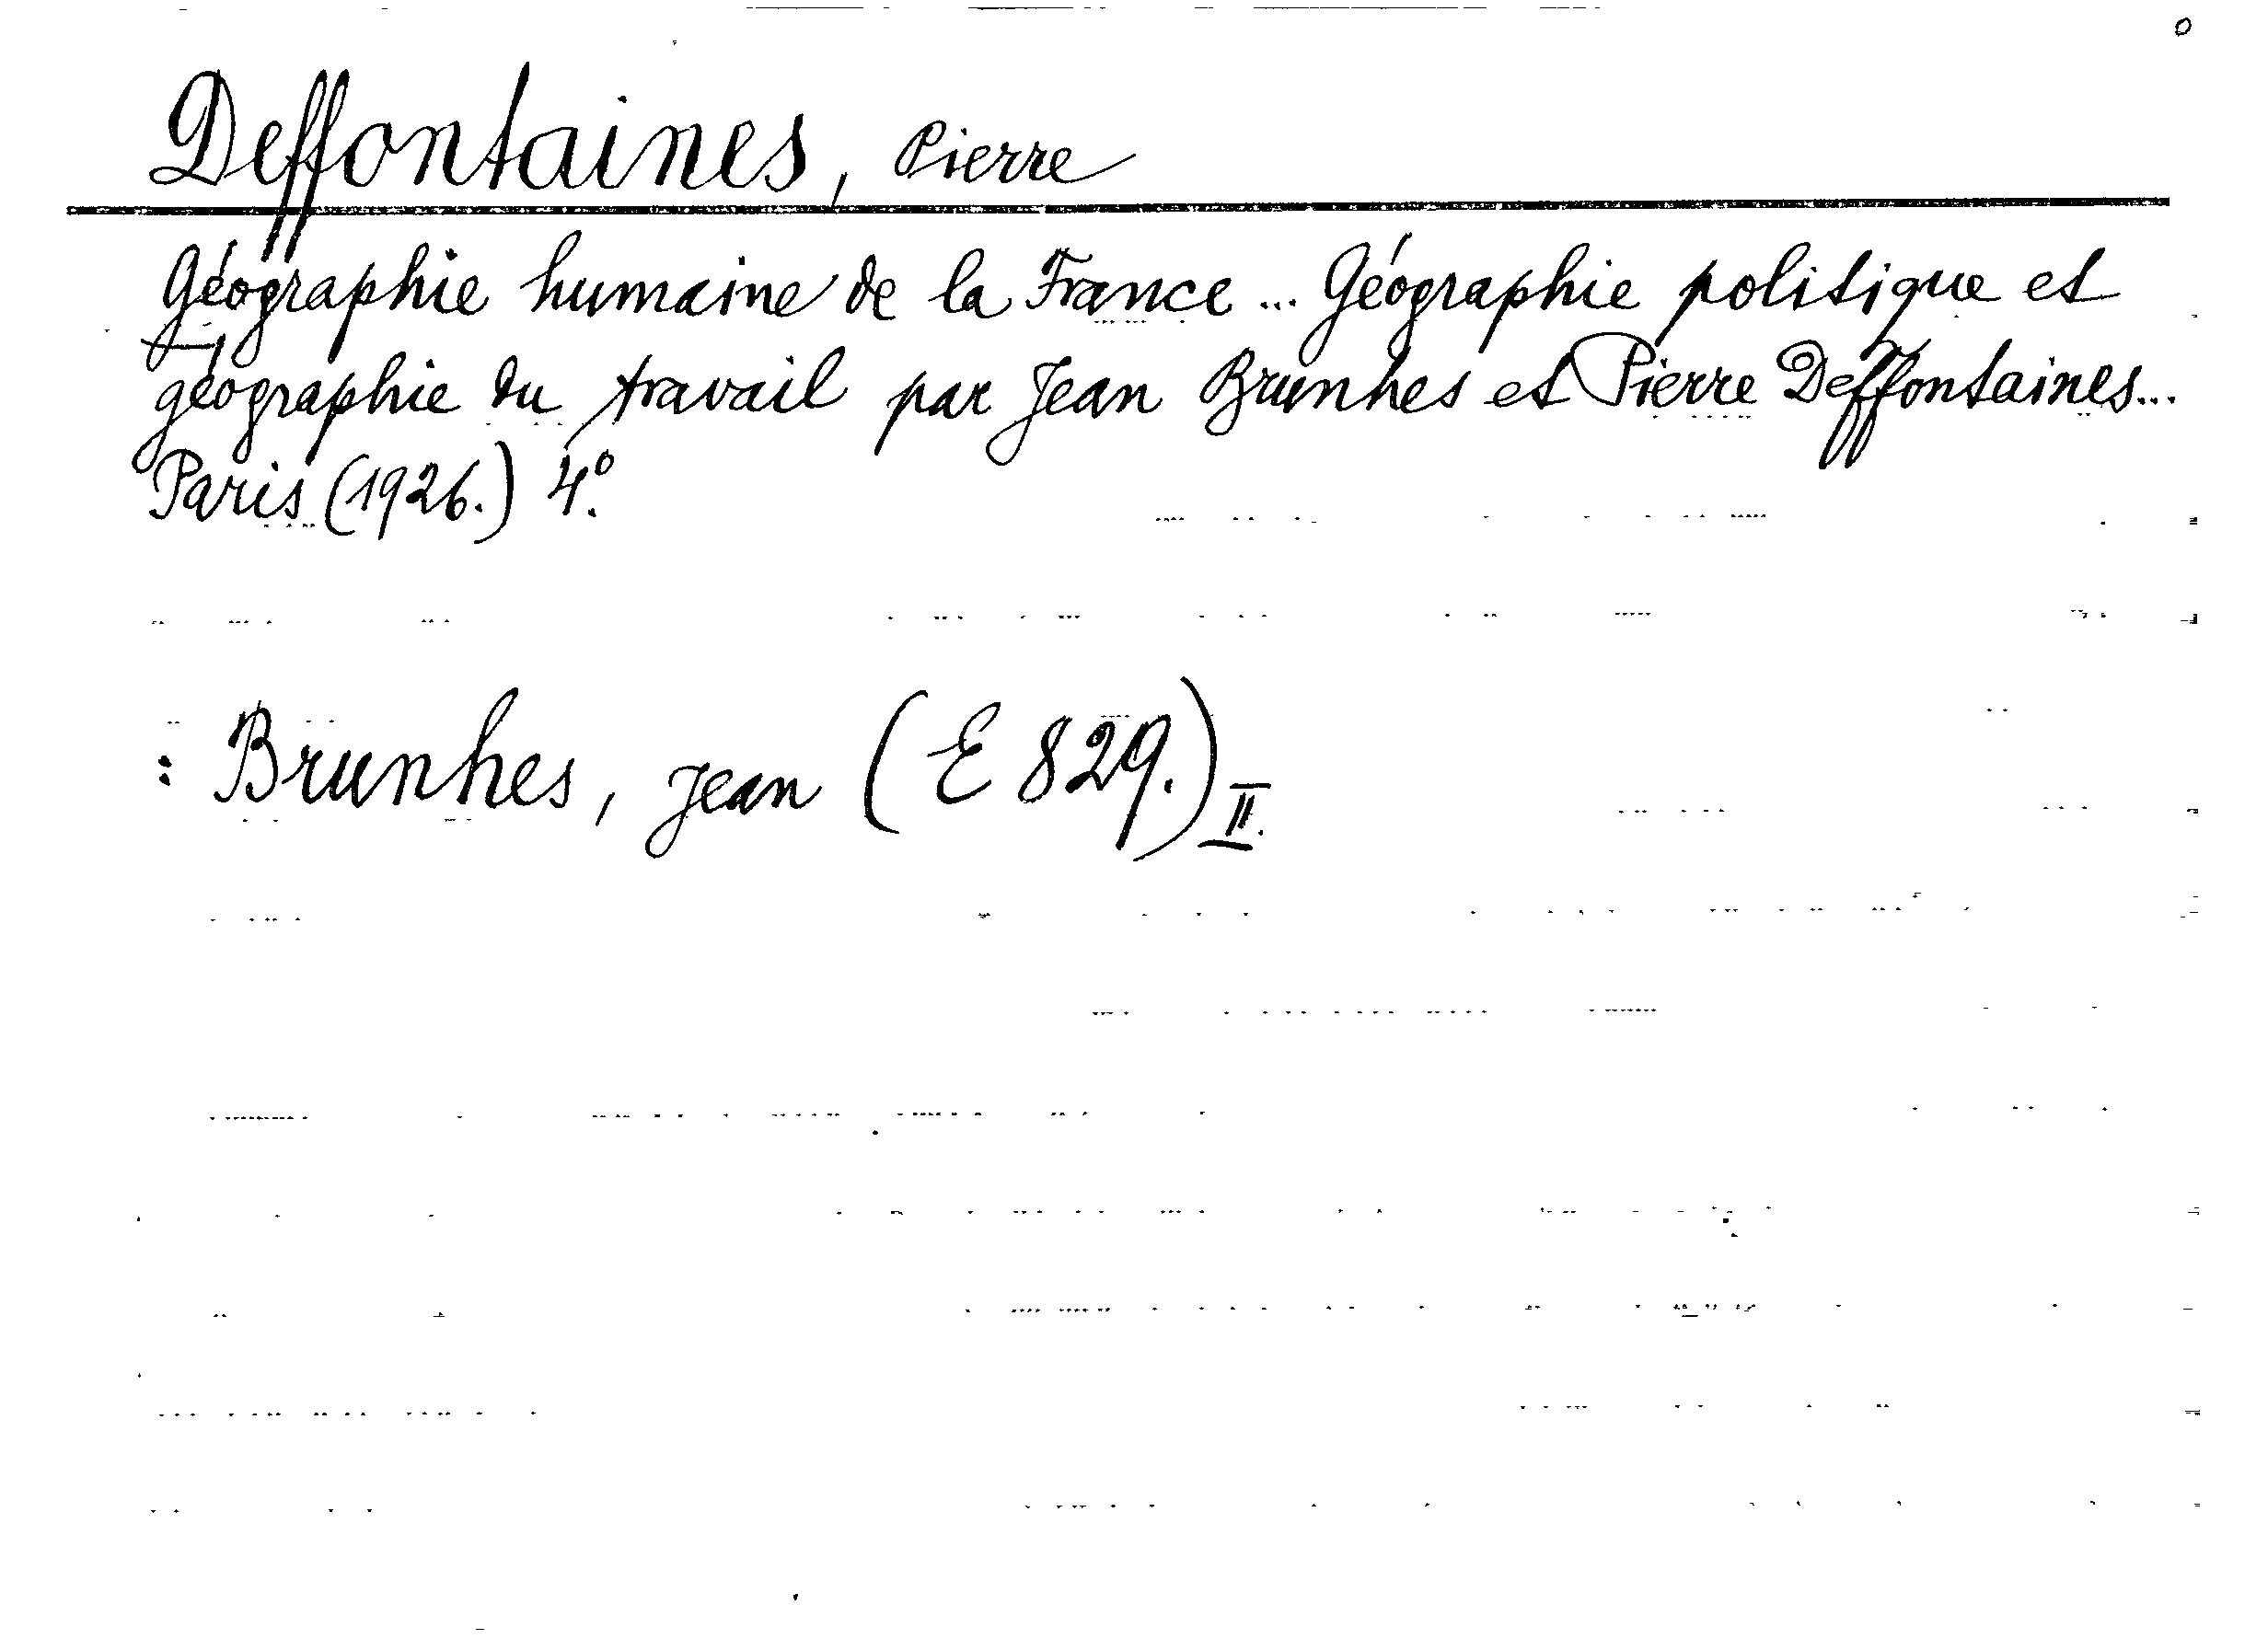 Deffontaines, Pierre
Géographie humaine de la France ... Géographie politique et
géographie du travail par Jean Brunhes et Pierre Deffontaines...
Paris (1926.) 4º.
: Brunhes, Jean (E 829.) II.